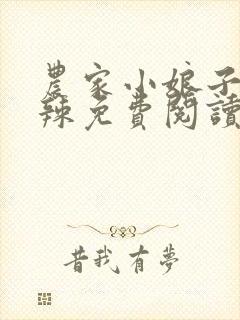 農家小娘子
辣免費閱讀
昔我有夢